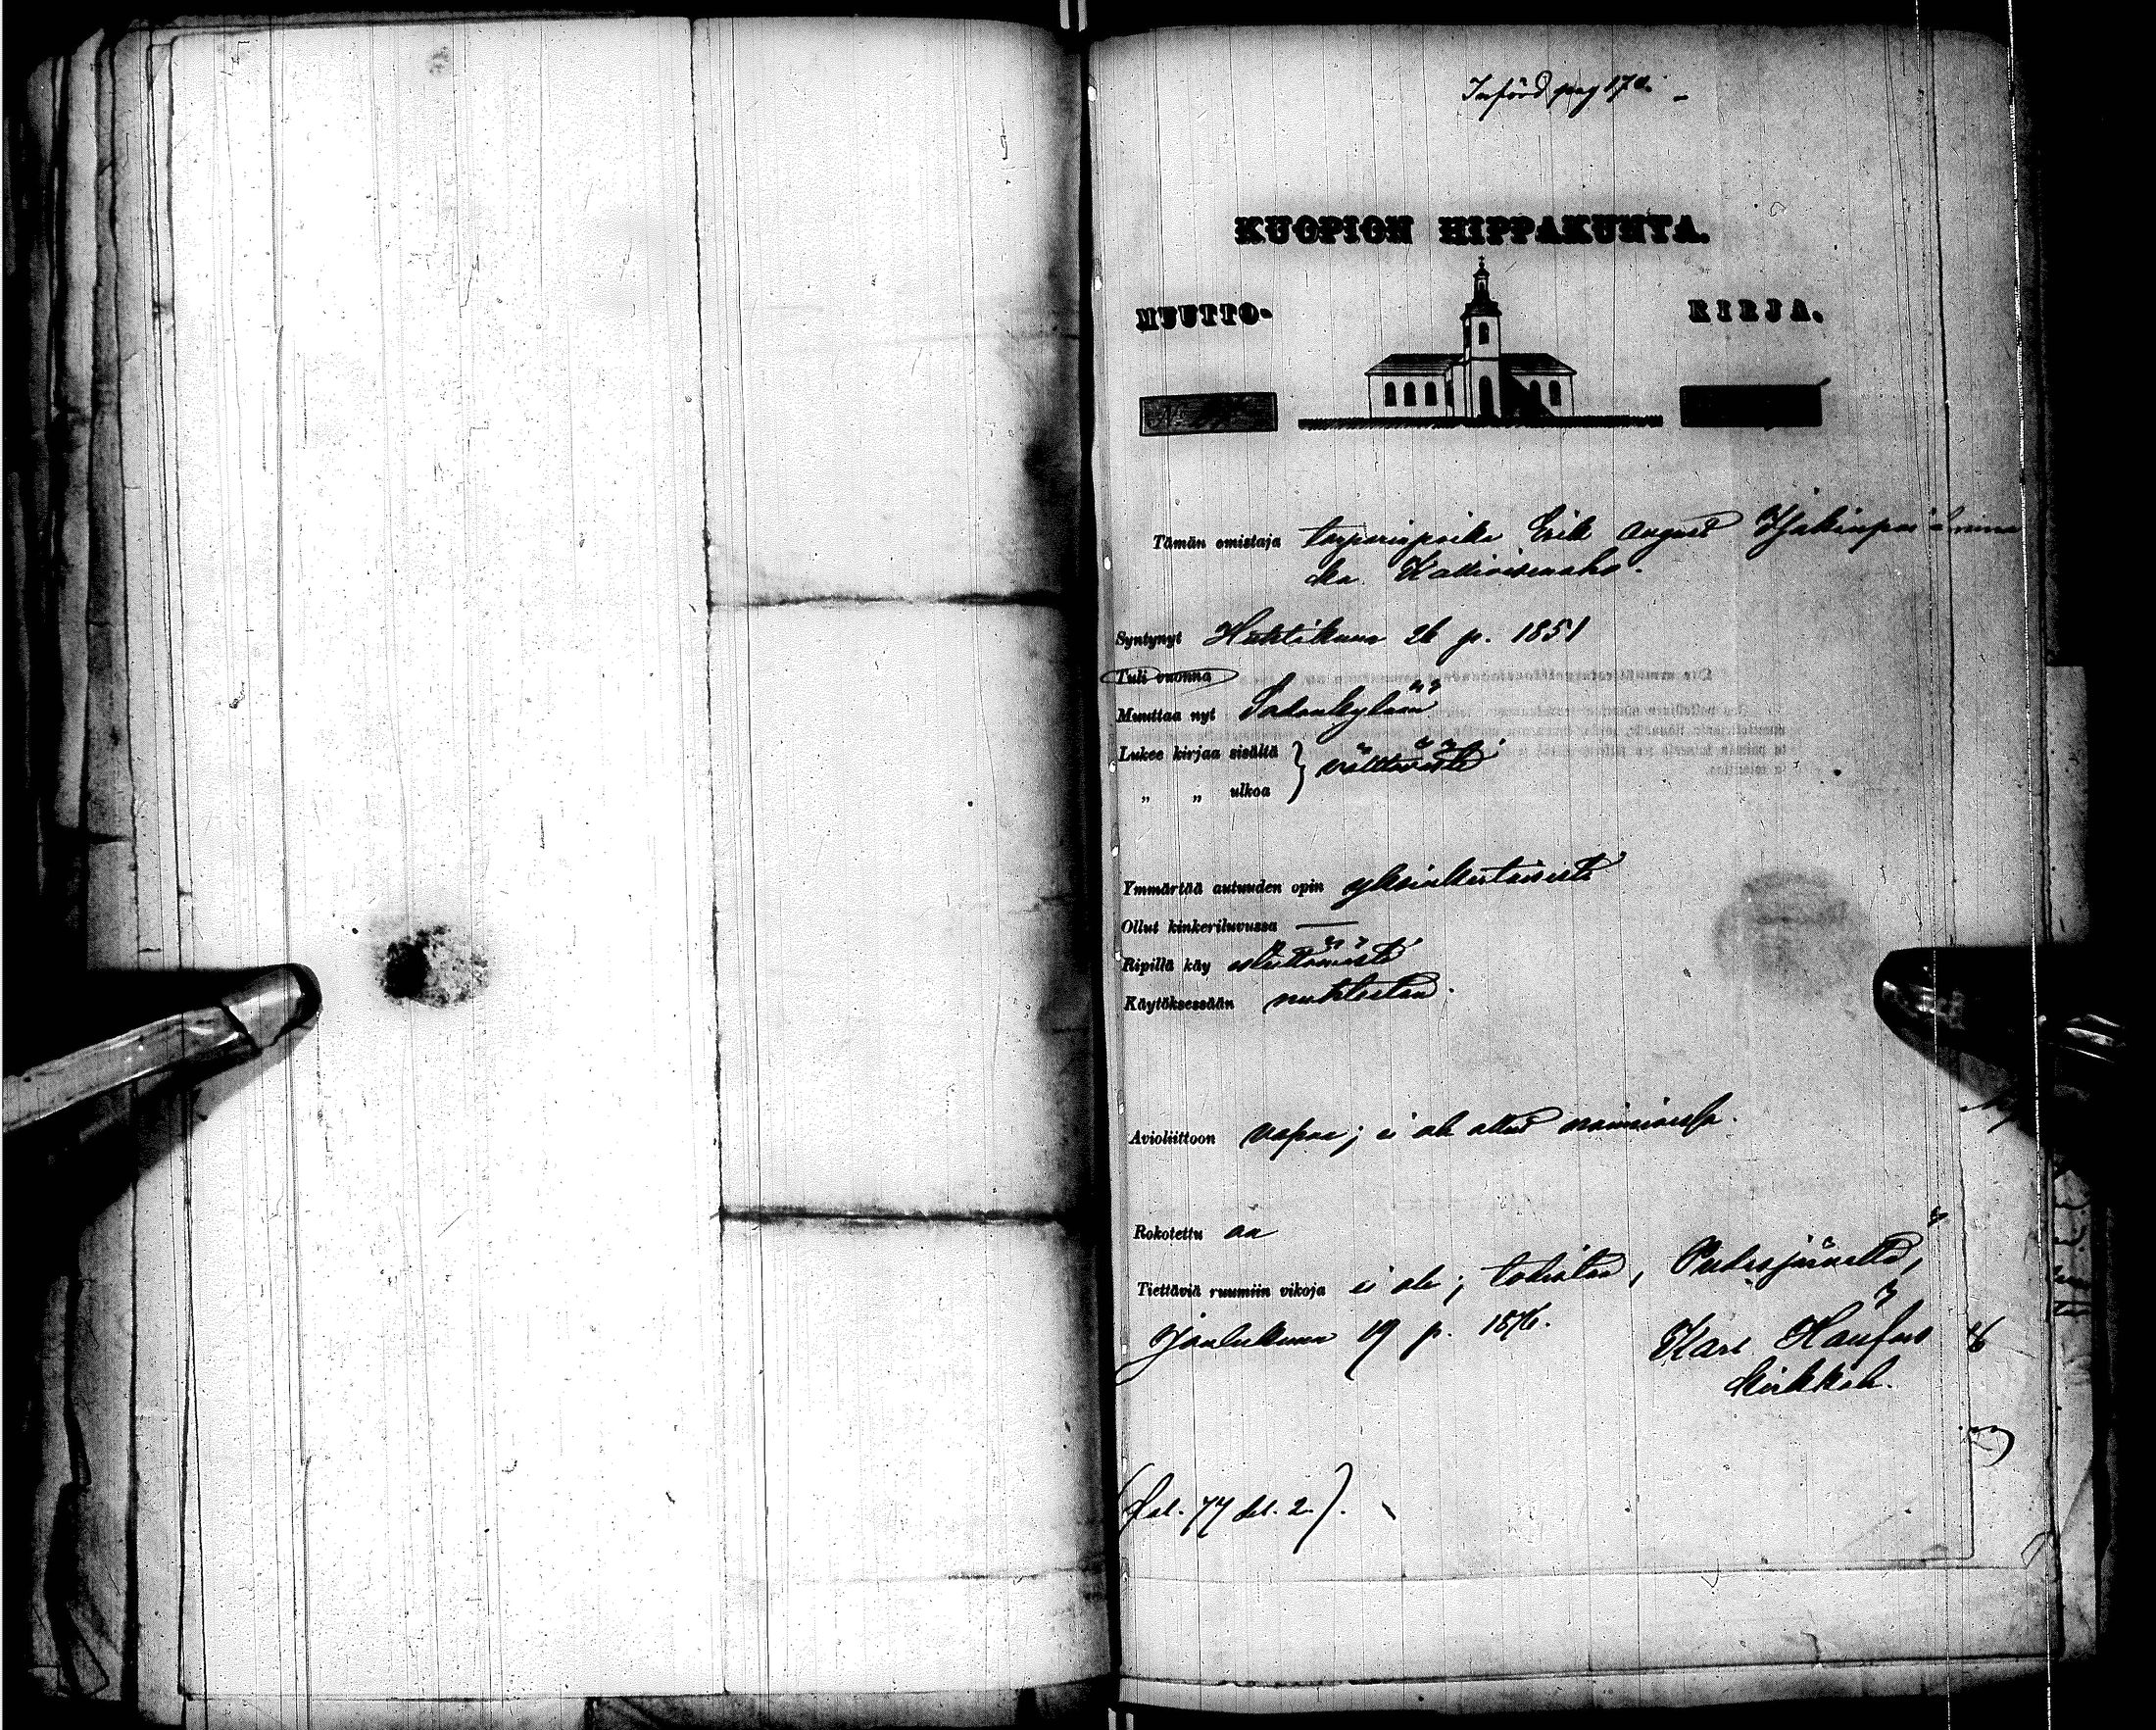 Införd pag 170.
KUOPION HIPPAKUNTA.
MUUTTO- KIRJA.
No
Tämän omistaja torparinpoika Erik August
Syntynyt Huhtikuun 26 p. 1851
Tuli vuonna
Muuttaa nyt Sodankylään
Lukee kirjaa sisältä } välttävästi
„ „ ulkoa
Ymmärtää autuuden opin yksinkertaisesti
Ollut kinkeriluvussa —
Ripillä käy esteettömästi
Käytöksessään nuhteeton.
Avioliittoon vapaa; ei ole ollut naimisessa.
Rokotettu on
Tiettäviä ruumiin vikoja ei ole; todistaa, Pudasjärveltä,
Joulukuun 19 p. 1876.
Karl
kirkkoh.
(Fol. 77 del. 2.).